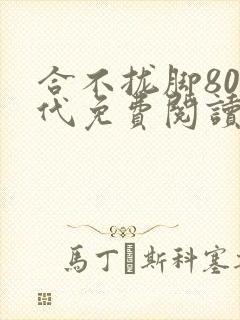 合不拢脚80
代免費閱讀
馬丁斯科塞